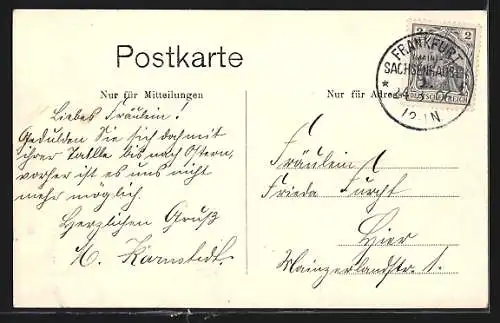 Postkarte
Nur für Mitteilungen
Nur für Adresse
2 2
FRANKFURT
(MAIN)
SACHSENHAUSEN
DEUTSCHES REICH
12-1N
Liebes Fräulein!
Gedulden Sie sich doch mit
ihrer Taille bis nach Ostern,
vorher ist es uns nicht
mehr möglich.
Herzlichen Gruß
A. Karnstedt.
Fräulein
Frieda Furcht
Hier
Mainzerlandstr. 1.